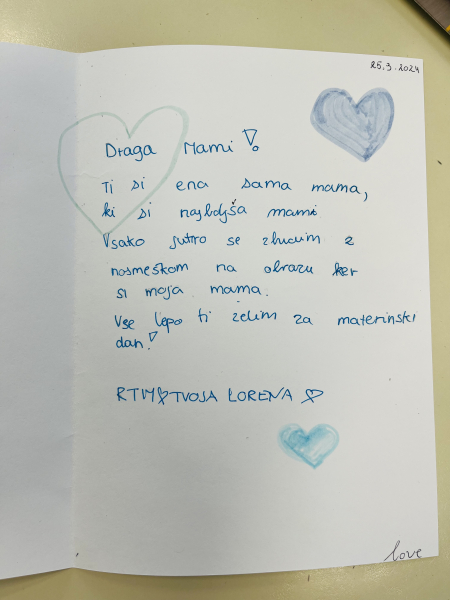 25.3.2024
Draga Mami!
Ti si ena sama mama,
ki si najboljša mami
Vsako jutro se zbudim z
nasmeškom na obrazu ker
si moja mama.
Vse lepo ti želim za materinski
dan!
RTM♡TVOJA LORENA ♡
love